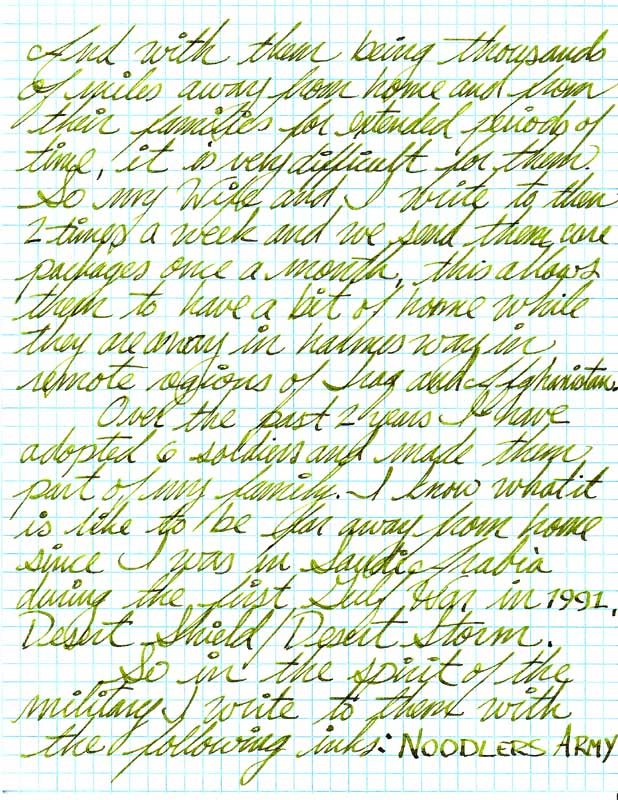 And with them being thousands
of miles away from home and from
their families for extended periods of
time, it is very difficult for them.
So my Wife and I write to them
2 times a week and we send them care
packages once a month, this allows
them to have a bit of home while
they are away in harmes way in
remote regions of Iraq and Afghanistan.
Over the past 2 years I have
adopted 6 soldiers and made them
part of my family. I know what it
is like to be far away from home
since I was in Saudi Arabia
during the first Gulf War in 1991,
Desert Shield/Desert Storm.
So in the spirit of the
military I write to them with
the following inks: NOODLERS ARMY